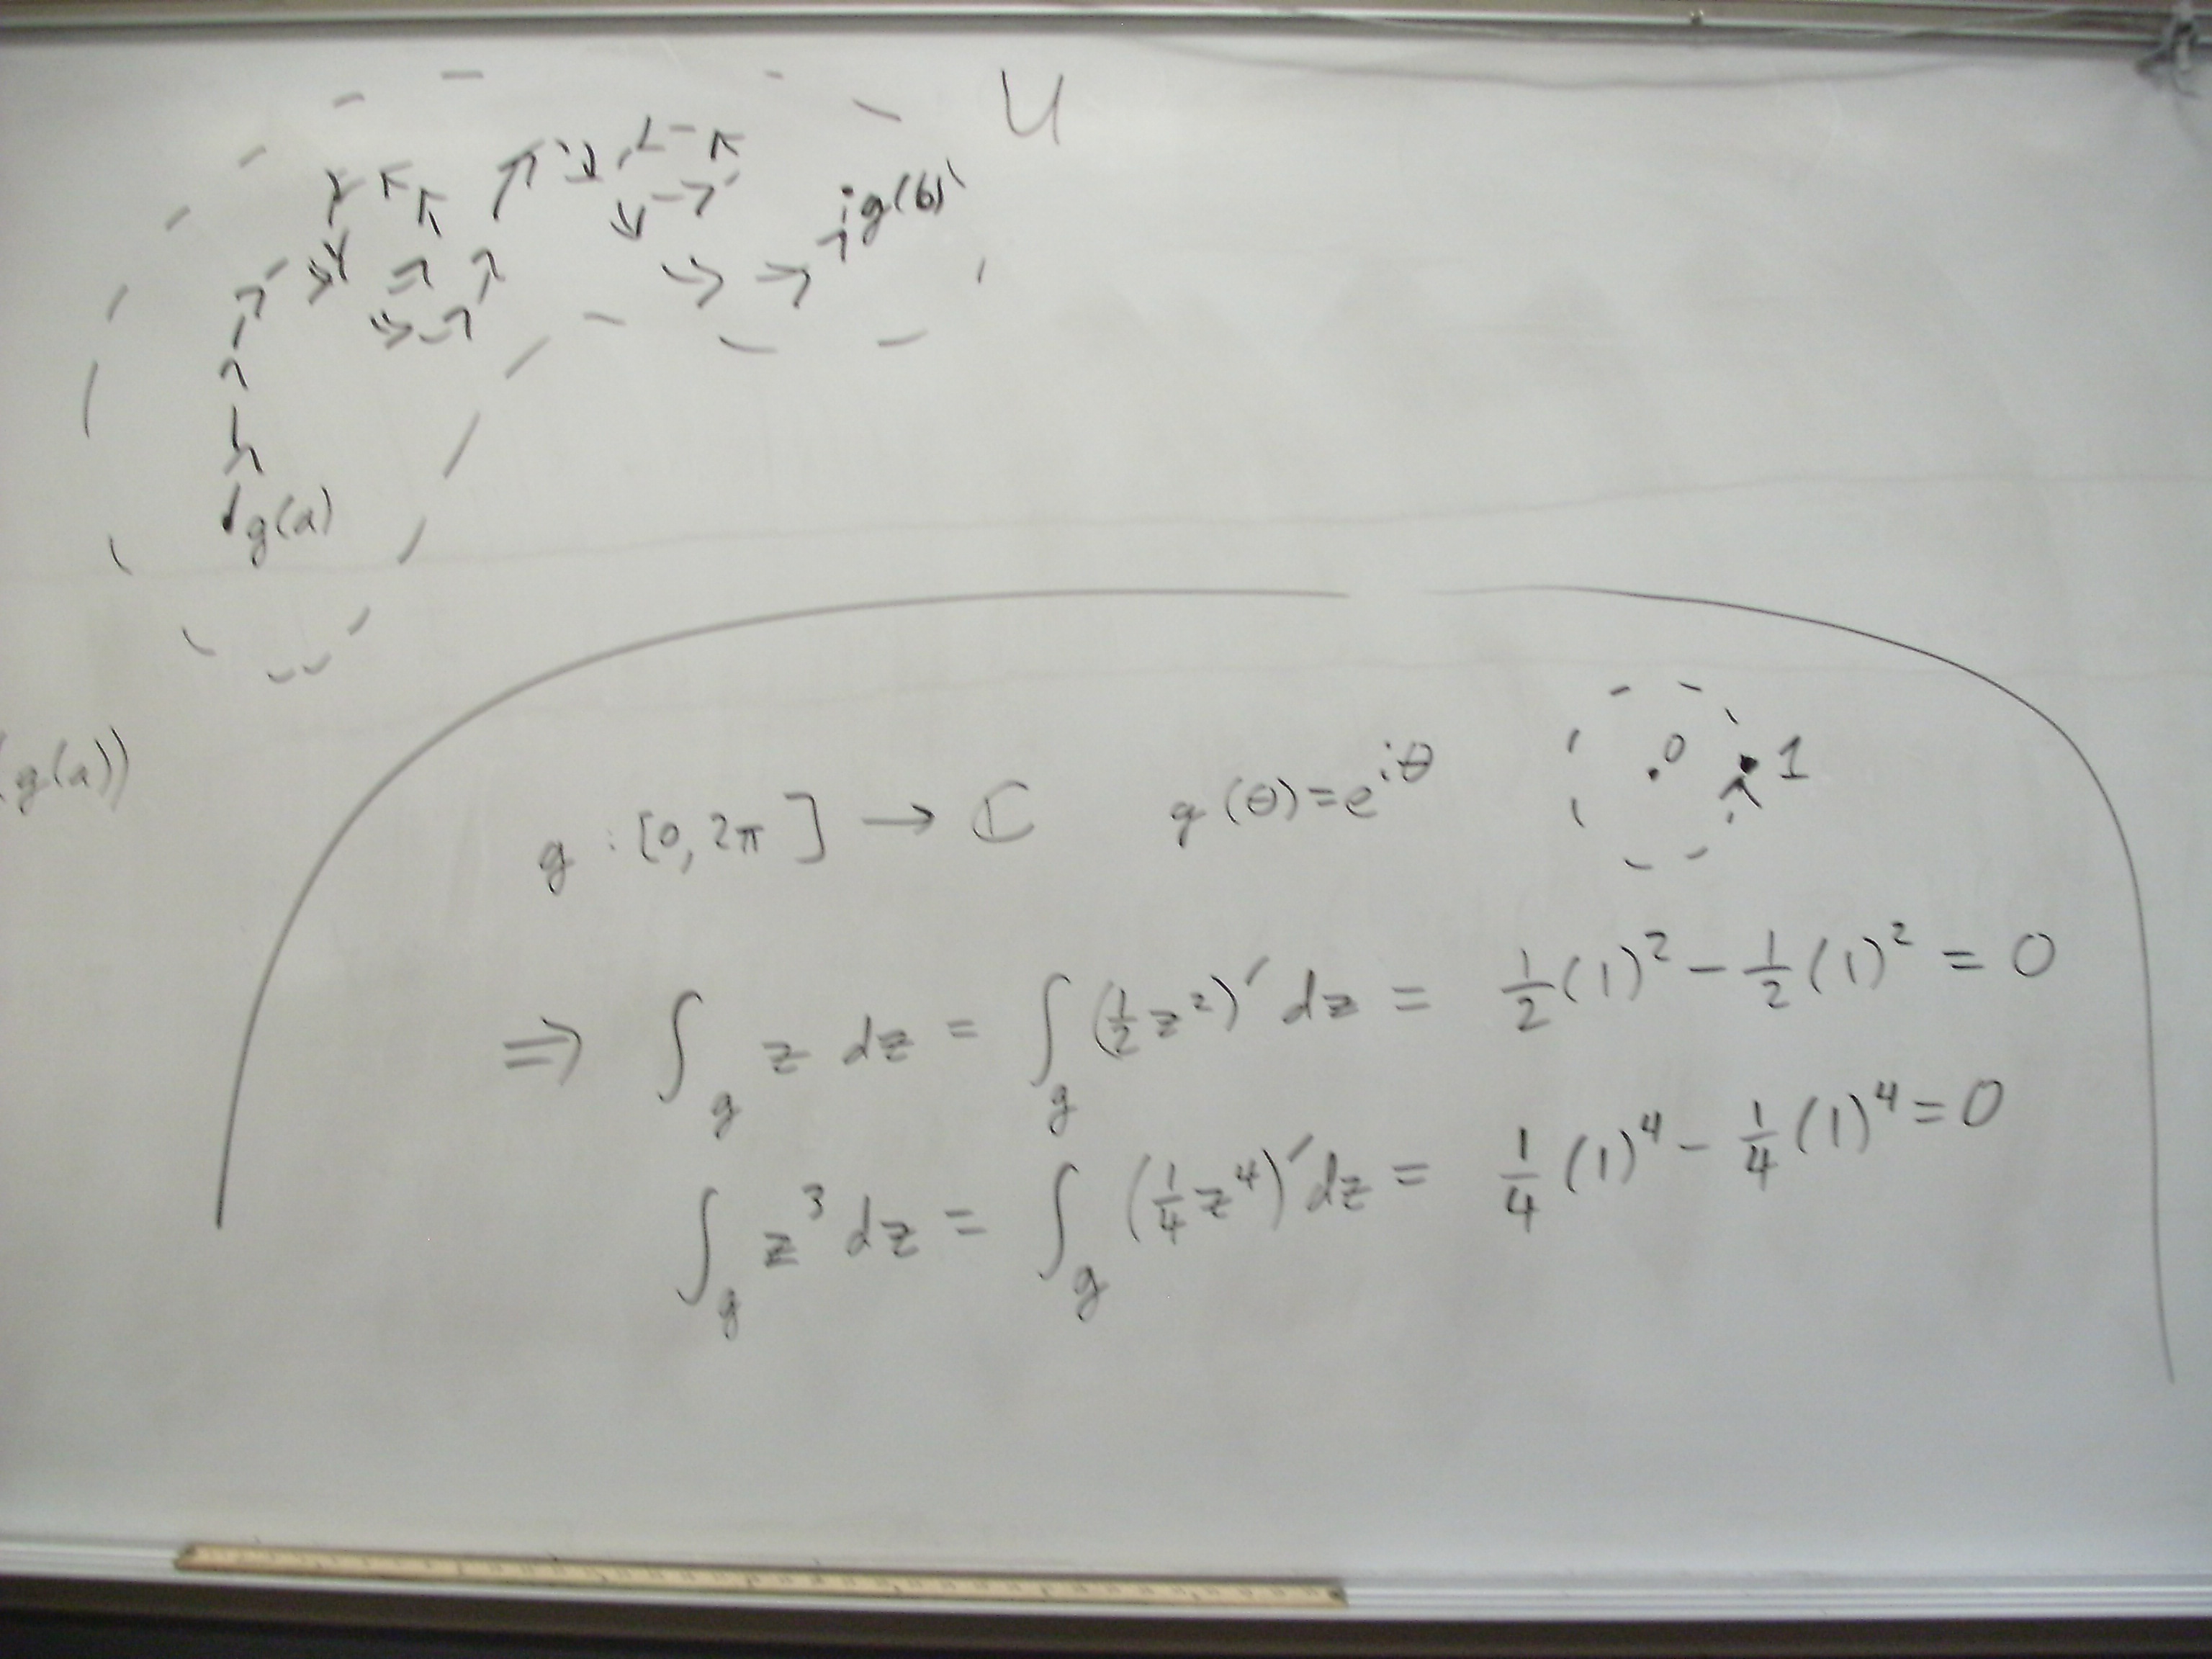 U
g(b)
g(a)
(g(a))
g : [0, 2π] → ℂ g(θ) = e^{iθ} 0 1
⇒ ∫_g z dz = ∫_g (½ z²)′ dz = ½(1)² − ½(1)² = 0
∫_g z³ dz = ∫_g (¼ z⁴)′ dz = ¼(1)⁴ − ¼(1)⁴ = 0